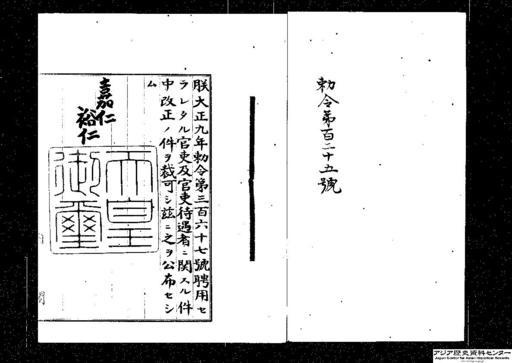 勅令第百二十五號
朕大正九年勅令第三百六十七號聘用セ
ラレタル官吏及官吏待遇者ニ関スル件
中改正ノ件ヲ裁可シ茲ニ之ヲ公布セシ
ム
嘉仁
裕仁
天皇
御璽
アジア歴史資料センター
Japan Center for Asian Historical Records